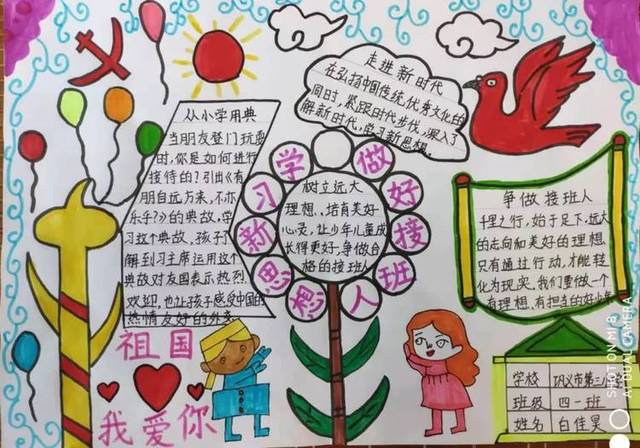 从小学用典
当朋友登门玩耍
时,你是如何进行
接待的?引出《有
朋自远方来,不亦
乐乎?》的典故,学
习这个典故,孩子了
解到习主席运用这个
典故对友国表示热烈
欢迎,也让孩子感受中国的
热情友好的外交
走进新时代
在弘扬中国传统优秀文化的
同时,紧跟时代步伐,深入了
解新时代,学习新思想。
学习新思想
做好接班人
树立远大
理想、培育美好
心灵,让少年儿童成
长得更好,争做合
格的接班人
争做接班人
千里之行,始于足下,远大
的志向和美好的理想
只有通过行动,才能转
化为现实。我们要做一个
有理想、有担当的好少年
祖国
我爱你
学校 巩义市第三小学
班级 四一班
姓名 白佳昊
SHOT ON MI 8
AI DUAL CAMERA